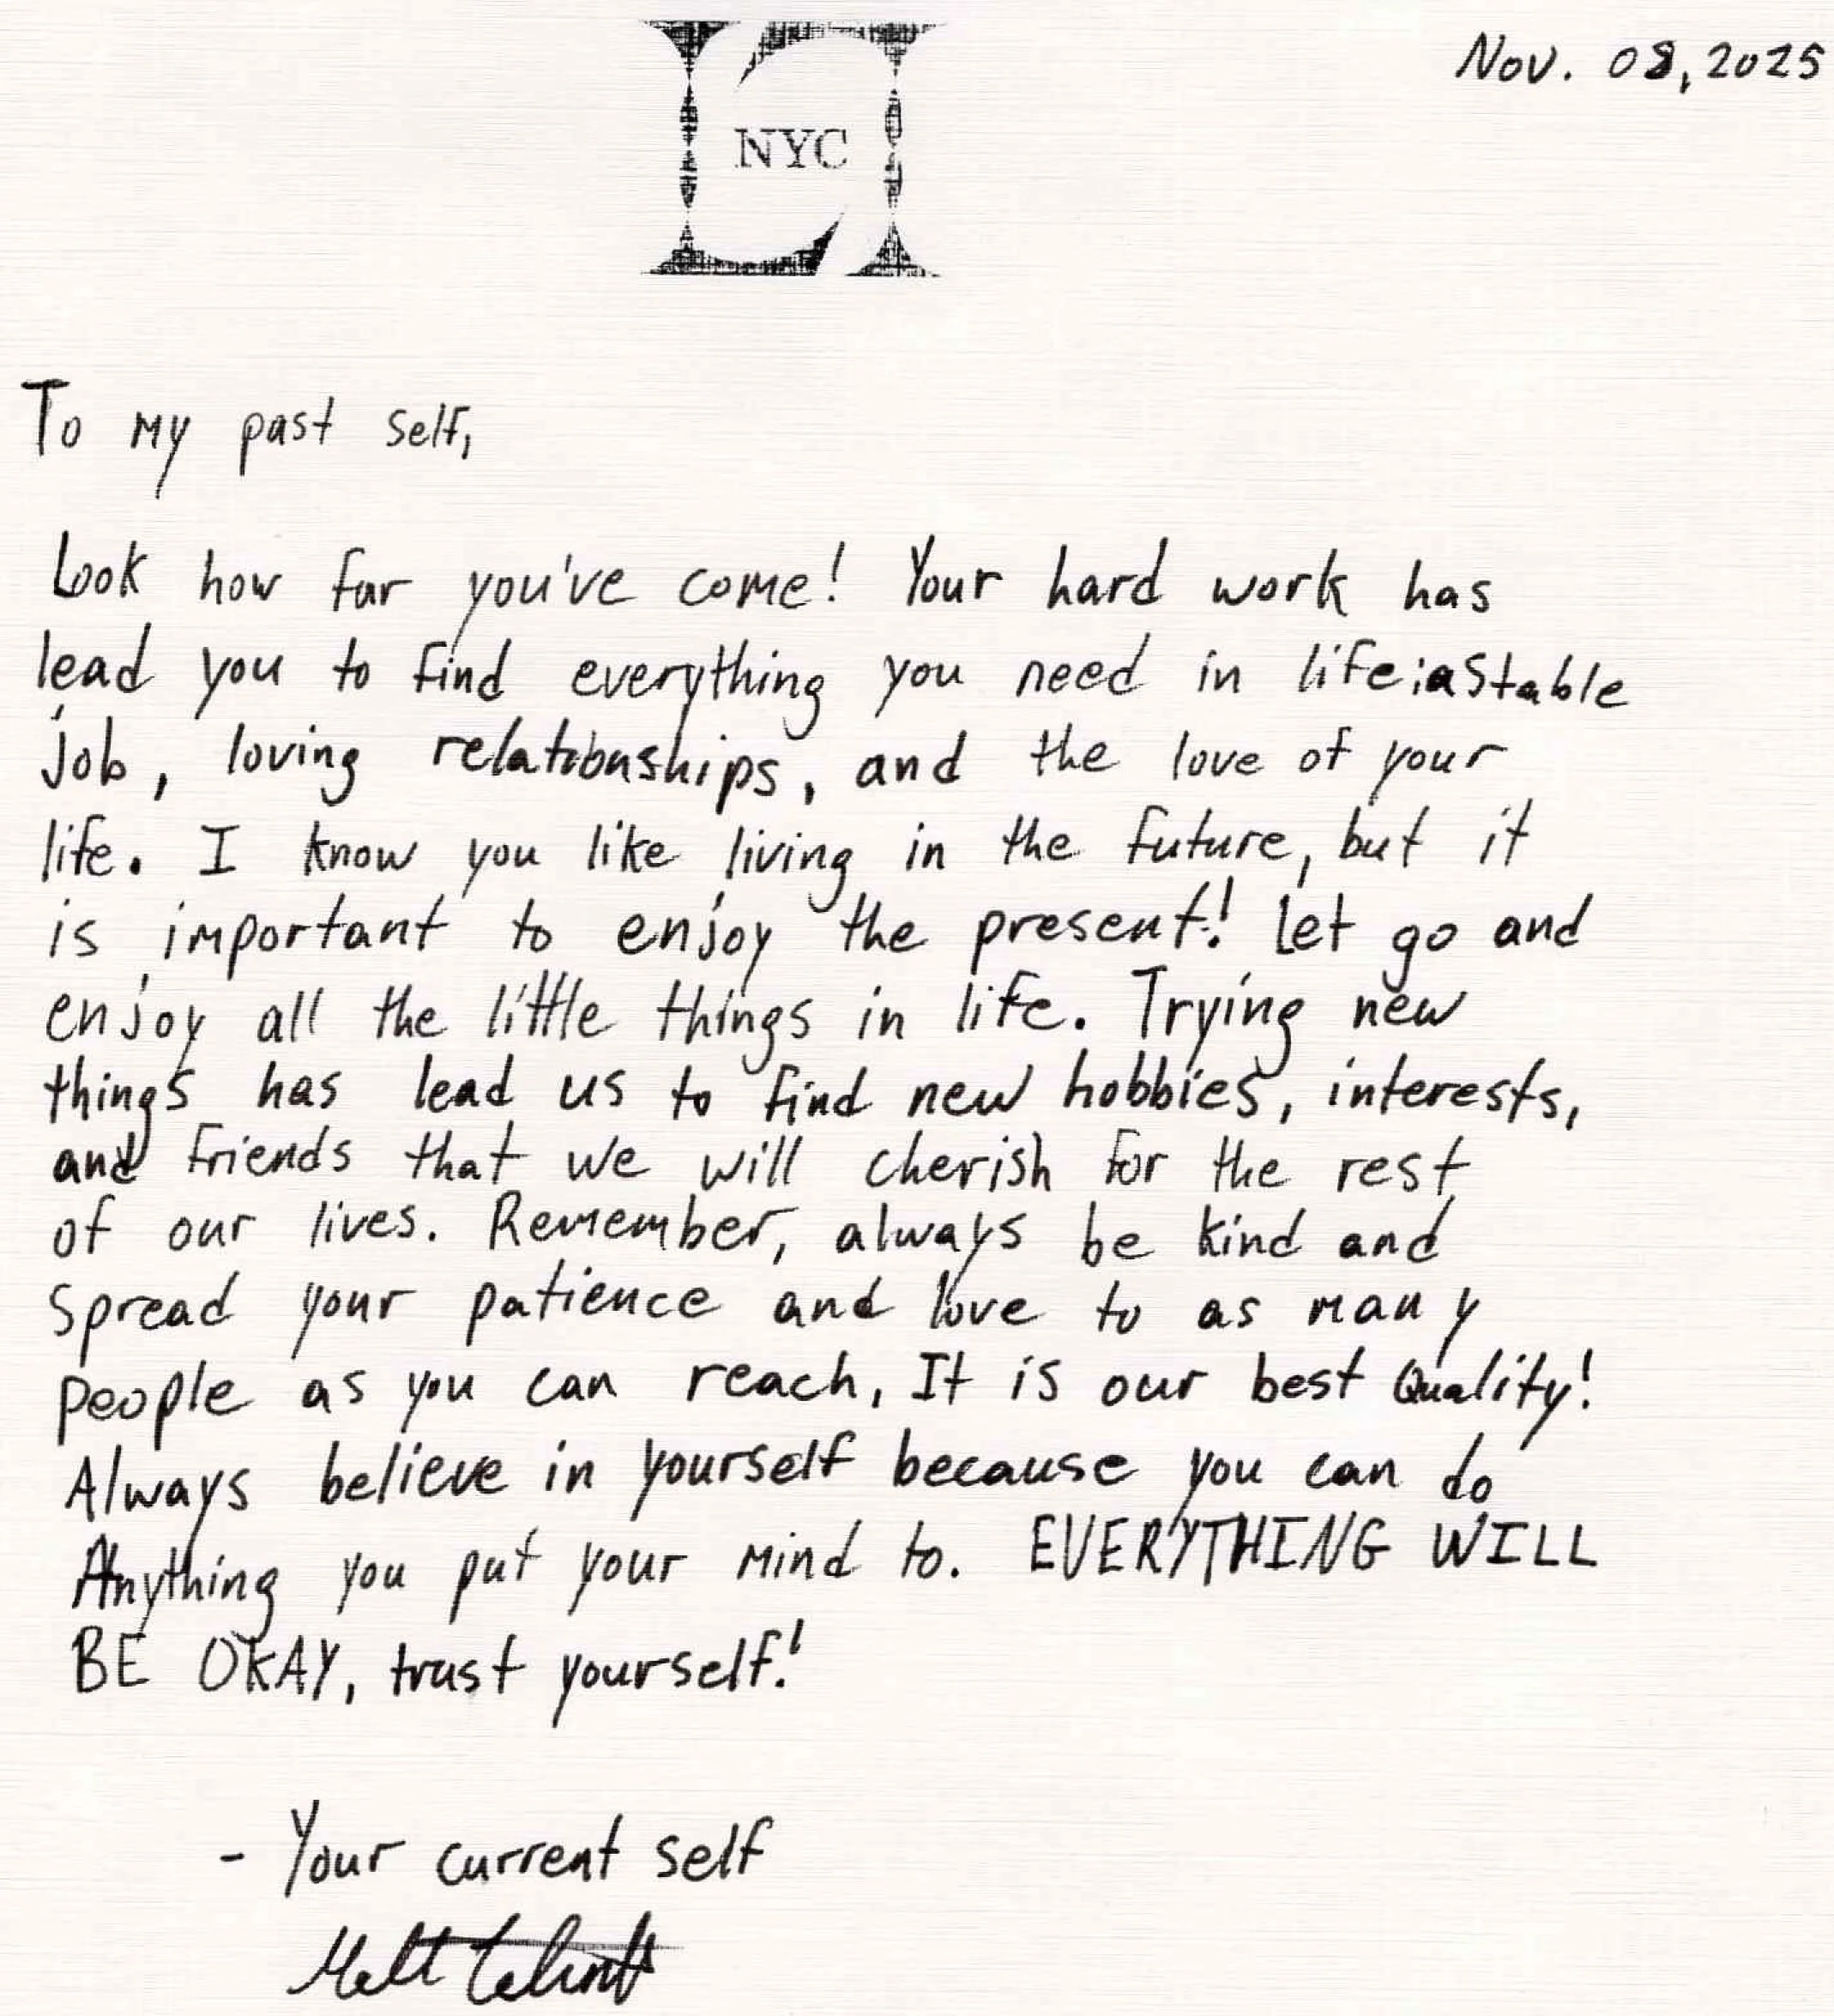 Nov. 08, 2025
NYC
To my past self,
Look how far you've come! Your hard work has
lead you to find everything you need in life: a stable
job, loving relationships, and the love of your
life. I know you like living in the future, but it
is important to enjoy the present! Let go and
enjoy all the little things in life. Trying new
things has lead us to find new hobbies, interests,
and friends that we will cherish for the rest
of our lives. Remember, always be kind and
spread your patience and love to as many
people as you can reach, It is our best Quality!
Always believe in yourself because you can do
Anything you put your mind to. EVERYTHING WILL
BE OKAY, trust yourself!
- Your current self
Matt